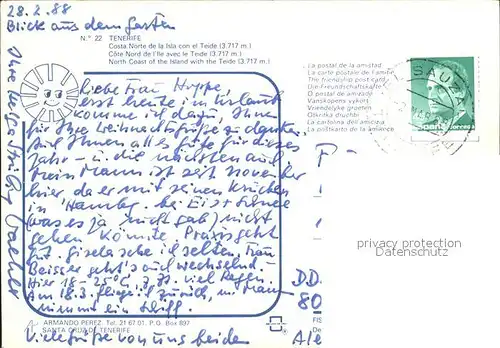 28.2.88
Blick aus dem Garten
N.° 22 TENERIFE
Costa Norte de la Isla con el Teide (3.717 m.)
Côte Nord de l'Ile avec le Teide (3.717 m.)
North Coast of the Island with the Teide (3.717 m.)
La postal de la amistad
La carte postale de l'amitié
The friendship post card
Die Freundschaftskarte
O postal de amizade
Vanskopens vykort
Vriendelijke groeten
La cartolina dell'amicizia
SAUZAL
España correos
Liebe Frau Hoppe,
erst heute im Urlaub
komme ich dazu, Ihnen
für Ihre Weihnachtsgrüße zu danken.
Auf Ihnen alles gute für dieses
Jahr - u. die nächsten auch
Mein Mann ist seit November
hier da er mit seinen Krücken
in Hambg. bei Eis + Schnee
(was es ja nicht gab) nicht
gehen könnte. Praxis geht
gut. Gisela sehe ich selten, Frau
Beisser geht's auch wechselnd.
Hier 18-25°C, viel Regen
Am 18.3. fliege ich zurück, m. Mann
nimmt ein Schiff.
Viele Grüße von uns beiden
Ihre
DD
80
privacy protection
Datenschutz
ARMANDO PEREZ. Tel. 21 67 01. P.O. Box 697
SANTA CRUZ DE TENERIFE